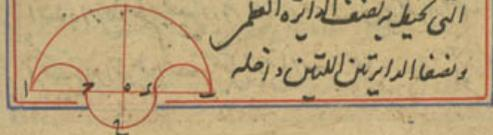 التى يحيط به نصف الدايرة العظمى
ونصفا الدايرتين اللتين داخله
ا ح ه ع ب